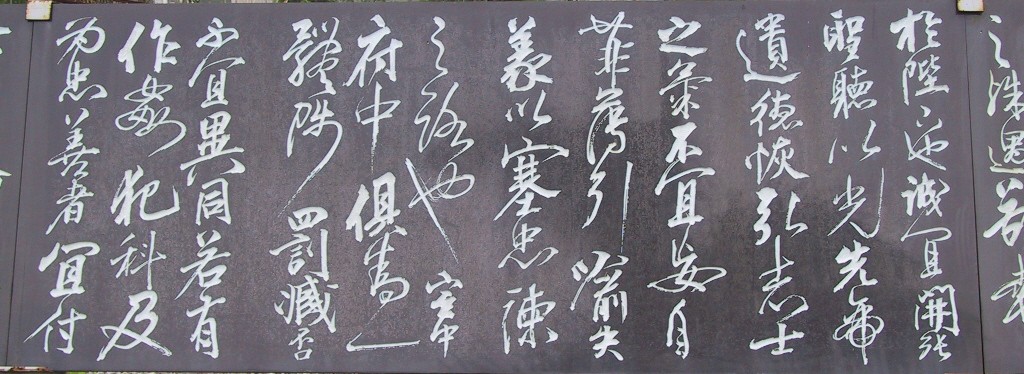 之殊遇欲報
於陛下也誠宜開張
聖聽以光先帝
遺德恢弘志士
之氣不宜妄自
菲薄引喻失
義以塞忠諫
之路也宮中
府中俱為一
體陟罰臧否
不宜異同若有
作姦犯科及
為忠善者宜付